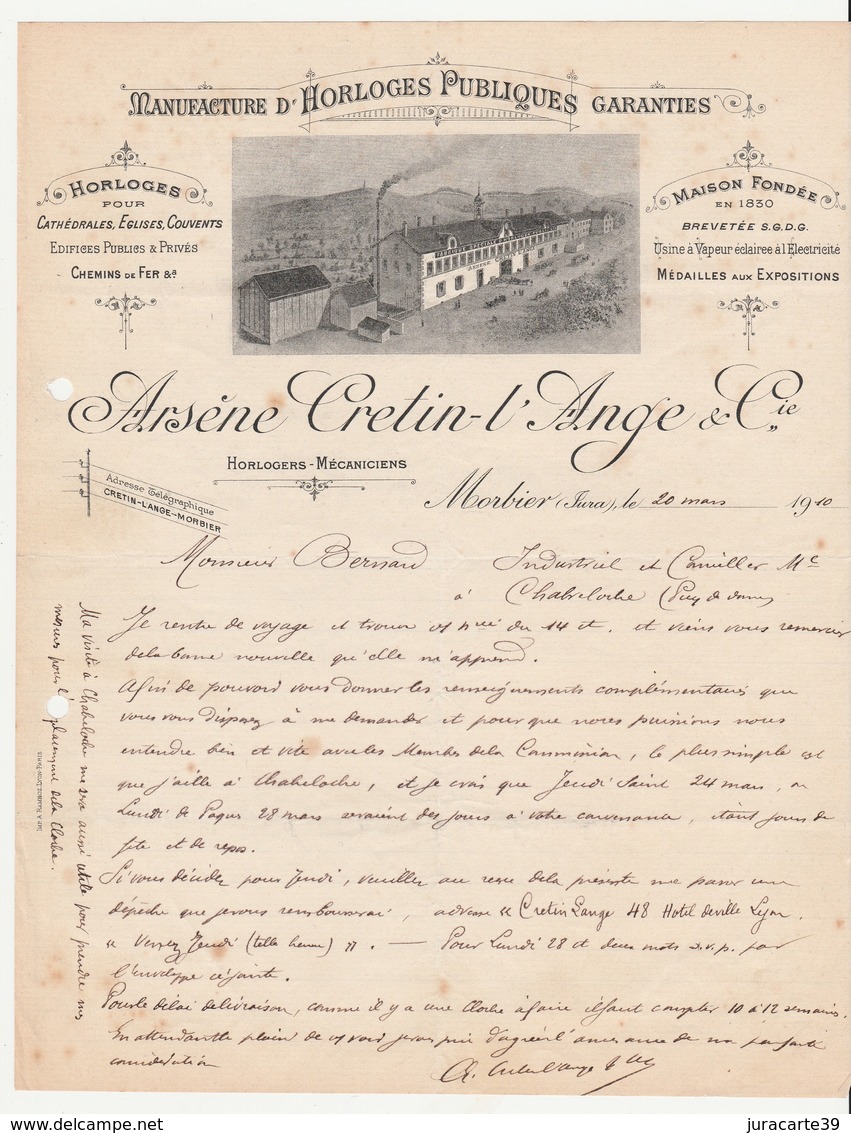 MANUFACTURE D'HORLOGES PUBLIQUES GARANTIES
HORLOGES
POUR
CATHÉDRALES, EGLISES, COUVENTS
EDIFICES PUBLICS & PRIVÉS
CHEMINS DE FER &a
MAISON FONDÉE
EN 1830
BREVETÉE S.G.D.G.
Usine à Vapeur éclairee à l Electricité
MÉDAILLES AUX EXPOSITIONS
Arséne Cretin-l'Ange & Cie
HORLOGERS-MÉCANICIENS
Adresse Télégraphique
CRETIN-LANGE-MORBIER
Morbier (Jura), le 20 mars 1910
Monsieur Bernard Industriel et Conseiller Mal
à Chabreloche (Puy de dome)
Je rentre de voyage et trouve du 14 ct. et viens vous remercier
de la bonne nouvelle qu'elle m'apprend.
Afin de pouvoir vous donner les renseignements complémentaires que
vous vous disposez à me demander et pour que nous puissions nous
entendre bien et vite avec les Membres de la Commission, le plus simple est
que j'aille à Chabreloche, et je crois que Jeudi Saint 24 mars, ou
Lundi de Paques 28 mars seraient des jours à votre convenance, étant jours de
fête et de repos.
Si vous décidez pour Jeudi, veuillez au reçu de la présente me passer une
dépêche que je vous rembourserai, adresse « Cretin Lange 48 Hotel de ville Lyon.
« Venez Jeudi (telle heure) ». — Pour Lundi 28 et deux mots s.v.p. par
l'Enveloppe ci jointe.
Pour le délai de livraison, comme il y a une Cloche à faire il faut compter 10 à 12 semaines.
En attendant le plaisir de vs voir je vous prie d'agréer l'assurance de ma parfaite
considération
A. Cretin l'Ange & Cie
Ma visite à Chabreloche me sera aussi utile pour prendre mes
mesures pour l'emplacement de la Cloche.
juracarte39